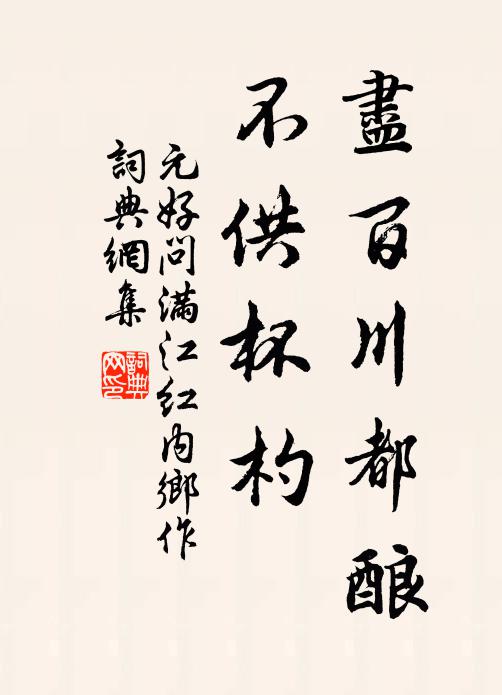 盡百川都酿
不供杯杓
元好问滿江红内鄉作
詞典網集
詞典网印